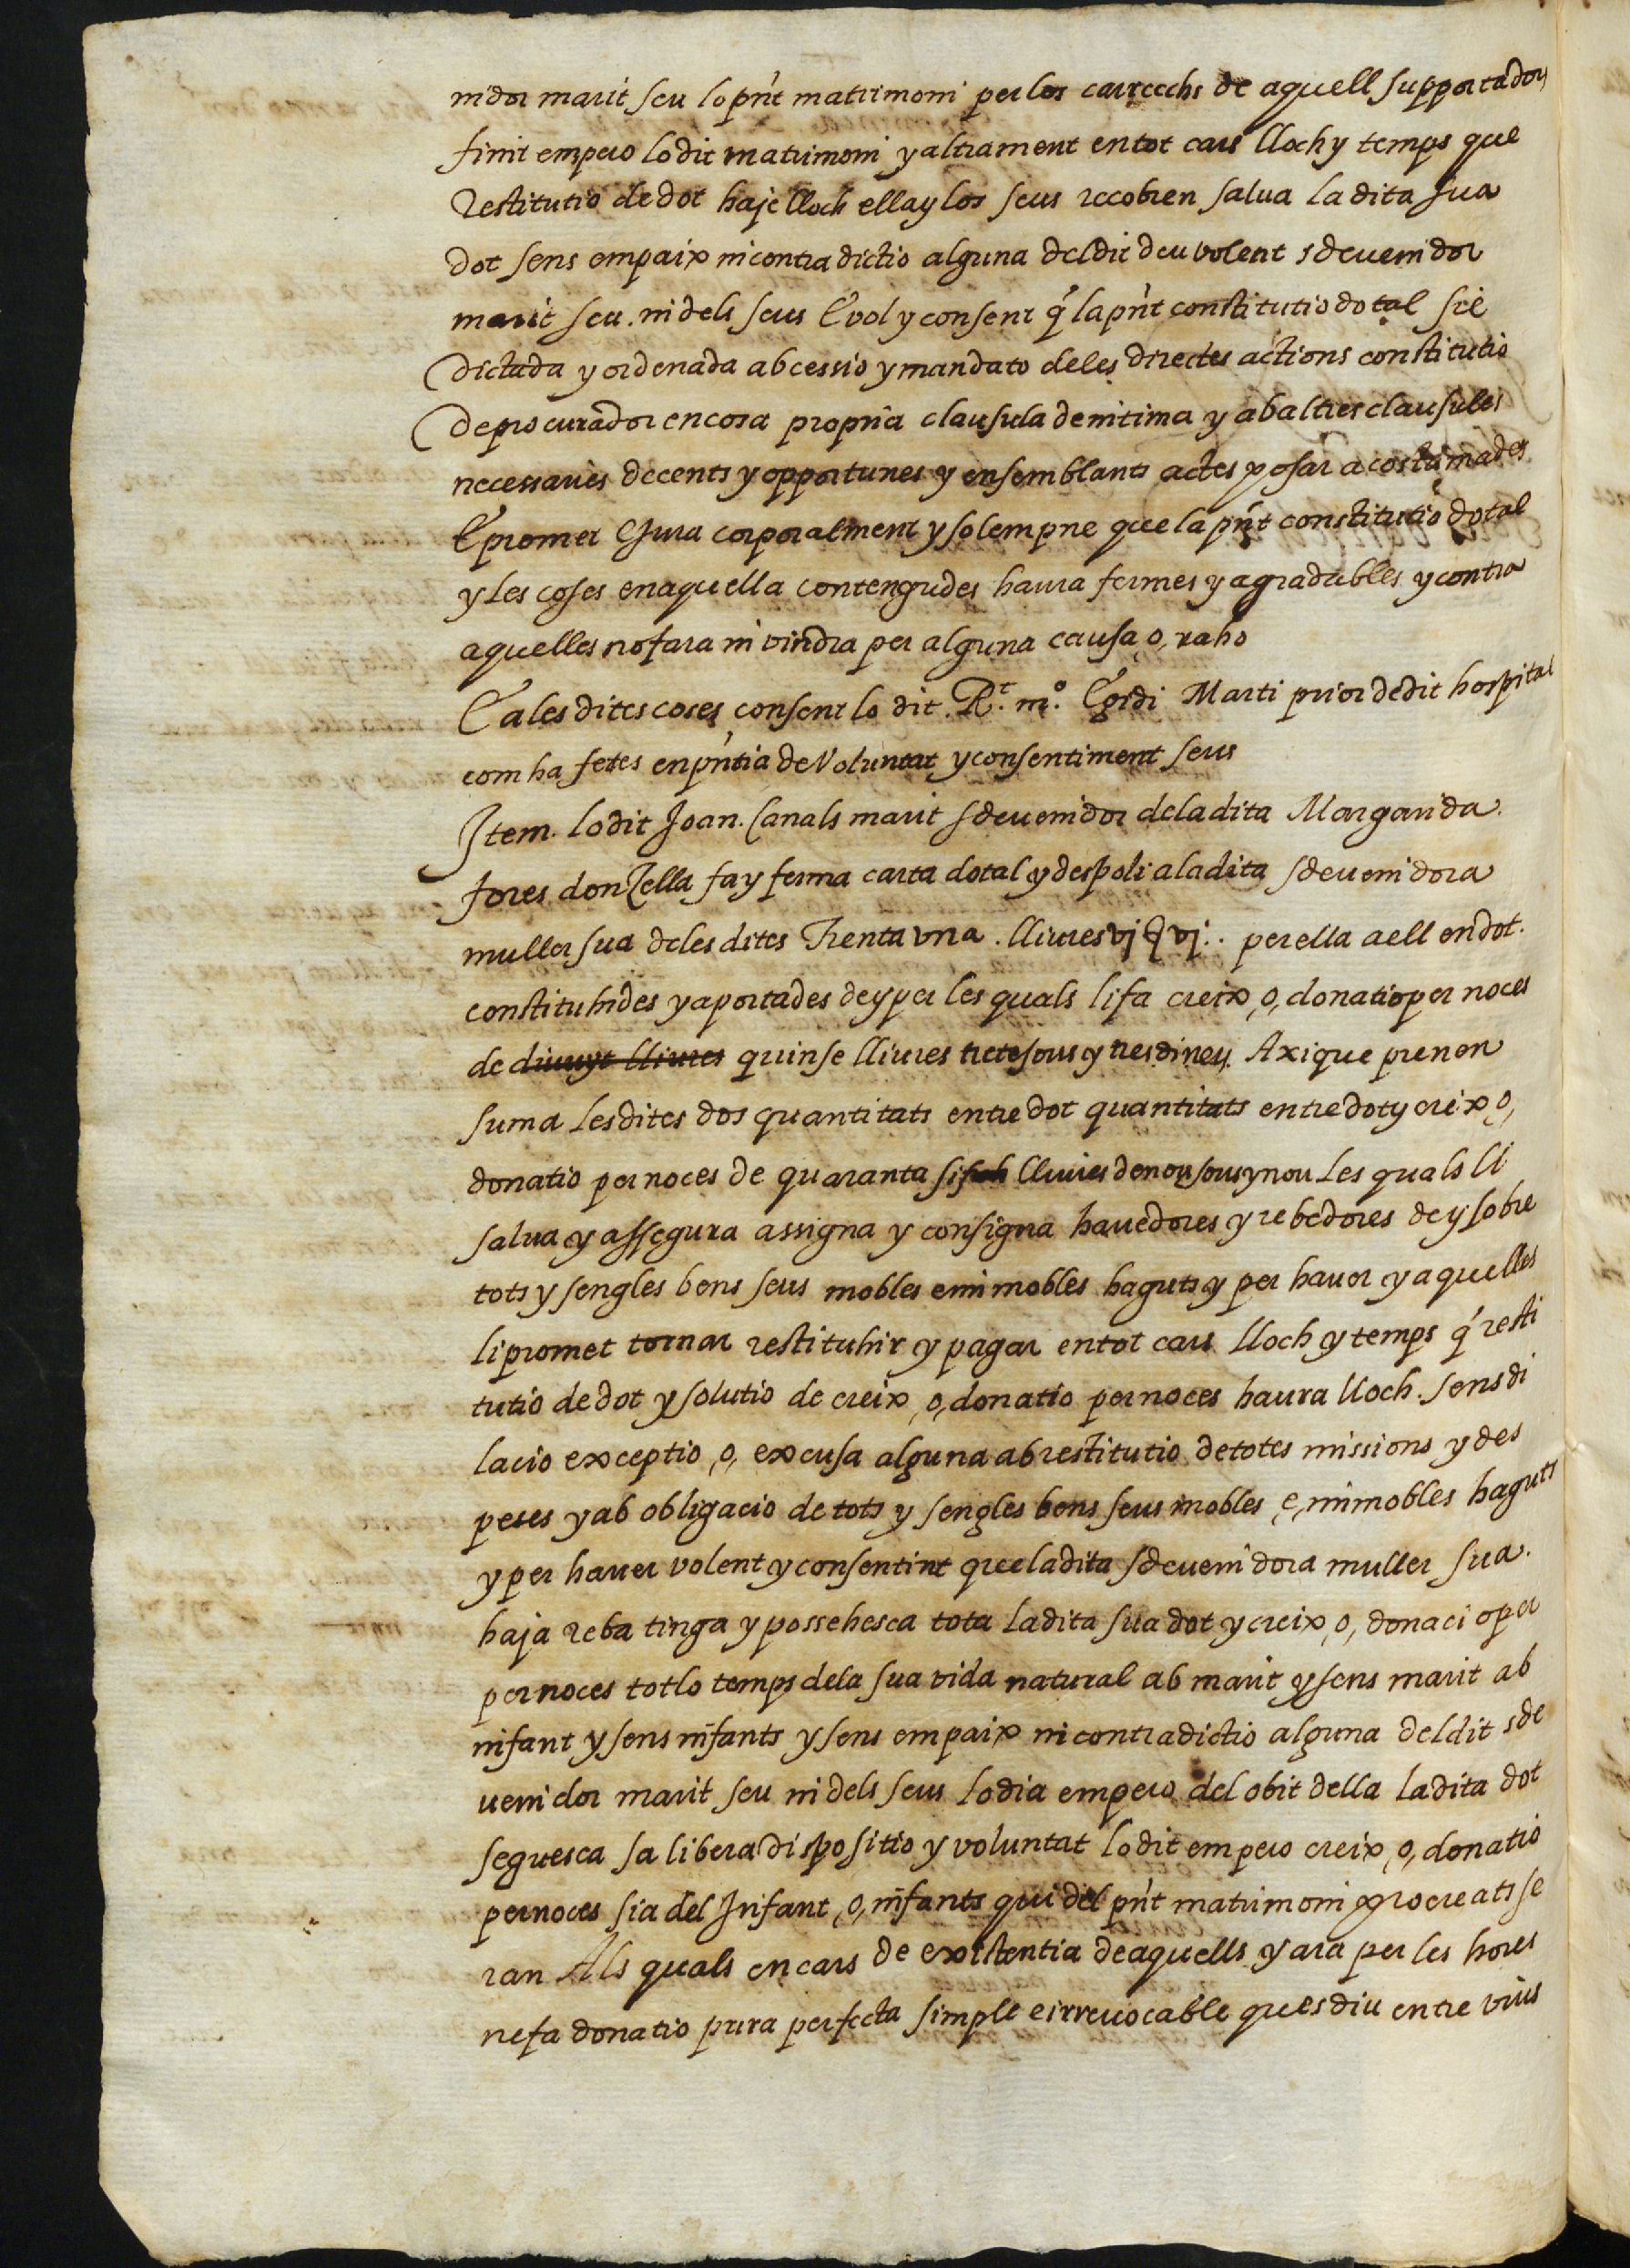 nidor marit seu lo pnt matrimoni per los carrechs de aquell supportadors
finit empero lo dit matrimoni y altrament en tot cars lloch y temps que
Restitutio de dot haje lloch ella y los seus recobren salua la dita sua
dot sens empaix ni contradictio alguna del dit deu volent sdeuenidor
marit seu. ni dels seus E vol y consent q la pnt constitutio dotal sie
dictada y ordenada ab cessio y mandato de les directes actions constitutio
de procurador en cosa propria clausula de nitima y ab altres clausules
necessaries decents y opportunes y en semblants actes posar acostumades
E promet E jura corporalment y solempne que la pnt constitutio dotal
y les coses en aquella contengudes haura fermes y agradables y contra
aquelles no fara ni vindra per alguna causa, o, raho
E a les dites coses consent lo dit. Rt. mo. Egidi Marti prior de dit hospital
com ha fetes en pntia de Voluntat y consentiment seus
Item. lo dit Joan. Canals marit sdeuenidor de la dita Margarida.
fores donzella fa y ferma carta dotal y despoli a la dita sdeuenidora
muller sua de les dites Trenta vna. lliures vj s vj.. per ella a ell en dot.
constituhides y aportades de y per les quals li fa creix, o, donatio per noces
de diuuyt lliures quinse lliures tretse sous y tres diners. Axi que prenen
suma les dites dos quantitats entre dot quantitats entre dot y creix, o,
donatio per noces de quaranta sis lliures denou sous y nou Les quals li
salua y assegura assigna y consigna hauedores y rebedores de y sobre
tots y sengles bens seus mobles e inmobles haguts y per hauer y aquelles
li promet tornar restituhir y pagar en tot cars lloch y temps q resti
tutio de dot y solutio de creix, o, donatio per noces haura lloch. sens di
lacio exceptio, o, excusa alguna ab restitutio de totes missions y des
peses y ab obligacio de tots y sengles bens seus mobles, e, inmobles haguts
y per hauer volent y consentint que la dita sdeuenidora muller sua.
haja reba tinga y possehesca tota la dita sua dot y creix, o, donacio per
per noces tot lo temps de la sua vida natural ab marit y sens marit ab
infant y sens infants y sens empaix ni contradictio alguna del dit sde
uenidor marit seu ni dels seus Lo dia empero del obit della la dita dot
seguesca sa libera dispositio y voluntat lo dit empero creix, o, donatio
per noces sia del Infant, o, infants qui del pnt matrimoni procreats se
ran Als quals en cars de existentia de aquells y ara per les hores
ne fa donatio pura perfecta simple e irreuocable ques diu entre vius